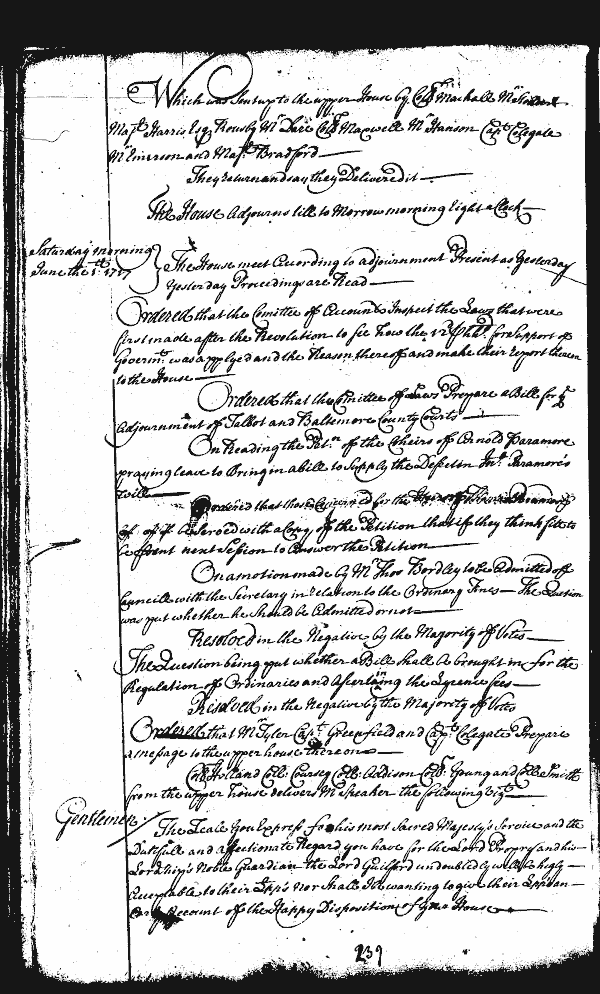 Which was Sent up to the upper House by Coll Mackall Mr
Majr Harris Esq. Rousby Mr Dare Coll Maxwell Mr Hanson Capt Colegate
Mr Emerson and Majr Bradford
They return and say they Delivered it
The House Adjourns till to Morrow morning Eight a Clock
Saturday morning
June the 1st 1717
The House meet According to adjournment Present as Yesterday
Yesterday Proceedings are Read
Ordered that the Comittee off Accounts Inspect the Laws that were
first made after the Revolution to see how the 12 for Support of
Governmt was applyed and the Reason thereoff and make their report
to the House
Ordered that the Comittee off Laws Prepare a Bill for ye
Adjournment off Talbot and Baltemore County Courts
On Reading the Petn off the Heirs off Arnold Paramore
praying leave to Bring in a bill to Supply the Deffect in Paramore's
Will
Ordered that those Concerned for the
be Served with a Copy off the Petition that iff they think fit to
be present next Session to answer the Petition
On a motion made by Mr Thos Bordley to be Admitted off
Councill with the Secretary in relation to the Ordinary Fines The Question
was put whether he Should be Admitted or not
Resolved in the Negative by the Majority off Votes
The Question being put whether a Bill shall be brought in for the
Regulation off Ordinaries and Ascertaining the Lycence fees
Resolved in the Negative by the Majority off Votes
Ordered that Mr Tyler Capt Greenfield and Capt Colegate Prepare
a message to the upper house thereon
Coll Holland Coll Coursey Coll Addison Coll Young and Coll Smith
from the upper house delivers Mr Speaker the following vizt
Gentlemen
The Zeale You Express for his most Sacred Majesty's Service and the
Dutifull and affectionate Regard you have for the Lord Propry and his
Lordship's Noble Guardian the Lord Guilford undoubtedly will be highly
Acceptable to their Lpps nor shall We be wanting to give their Lpps an
Account off the Happy Disposition of your House
239